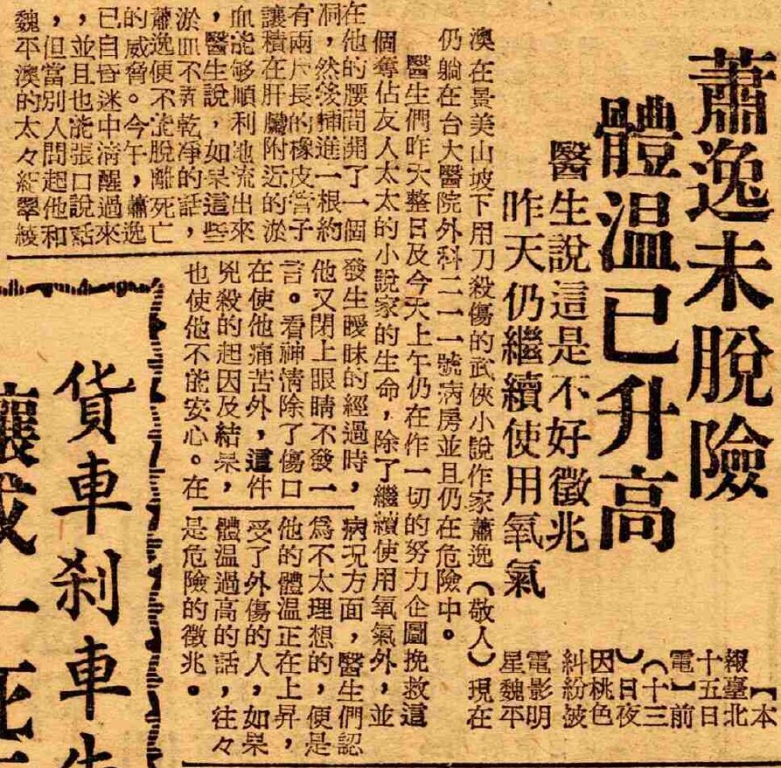 蕭逸未脫險
體溫已升高
醫生說這是不好徵兆
昨天仍繼續使用氧氣
【本
報臺北
十五日
電】前
(十三
)日夜
因桃色
糾紛被
電影明
星魏平
澳在景美山坡下用刀殺傷的武俠小說作家蕭逸(敬人)現在
仍躺在台大醫院外科二一一號病房並且仍在危險中。
醫生們昨天整日及今天上午仍在作一切的努力企圖挽救這
個奪佔友人太太的小說家的生命,除了繼續使用氧氣外,並
在他的腰間開了一個
洞,然後插進一根約
有兩尺長的橡皮管子
讓積在肝臟附近的淤
血能够順利地流出來
,醫生說,如果這些
淤血不弄乾净的話,
蕭逸便不能脫離死亡
的威脅。今午,蕭逸
已自昏迷中清醒過來
,並且也能張口說話
,但當別人問起他和
魏平澳的太々紀翠綾
發生曖昧的經過時,
他又閉上眼睛不發一
言。看神情除了傷口
在使他痛苦外,這件
兇殺的起因及結果,
也使他不能安心。在
病況方面,醫生們認
爲不太理想的,便是
他的體溫正在上昇,
受了外傷的人,如果
體溫過高的話,往々
是危險的徵兆。
貨車剎車
成一死